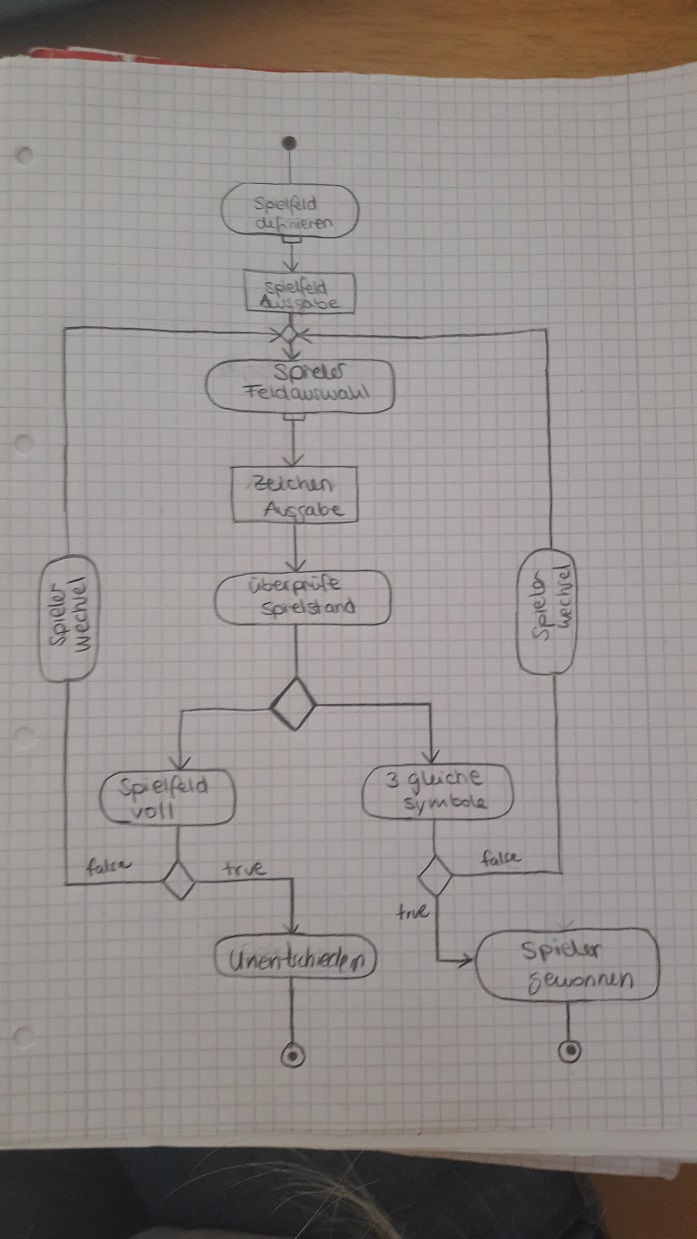 Spielfeld
definieren
Spielfeld
Ausgabe
Spieler
Feldauswahl
Zeichen
Ausgabe
überprüfe
Spielstand
Spieler
wechsel
Spieler
wechsel
Spielfeld
voll
3 gleiche
symbole
false
true
false
true
Unentschieden
Spieler
gewonnen